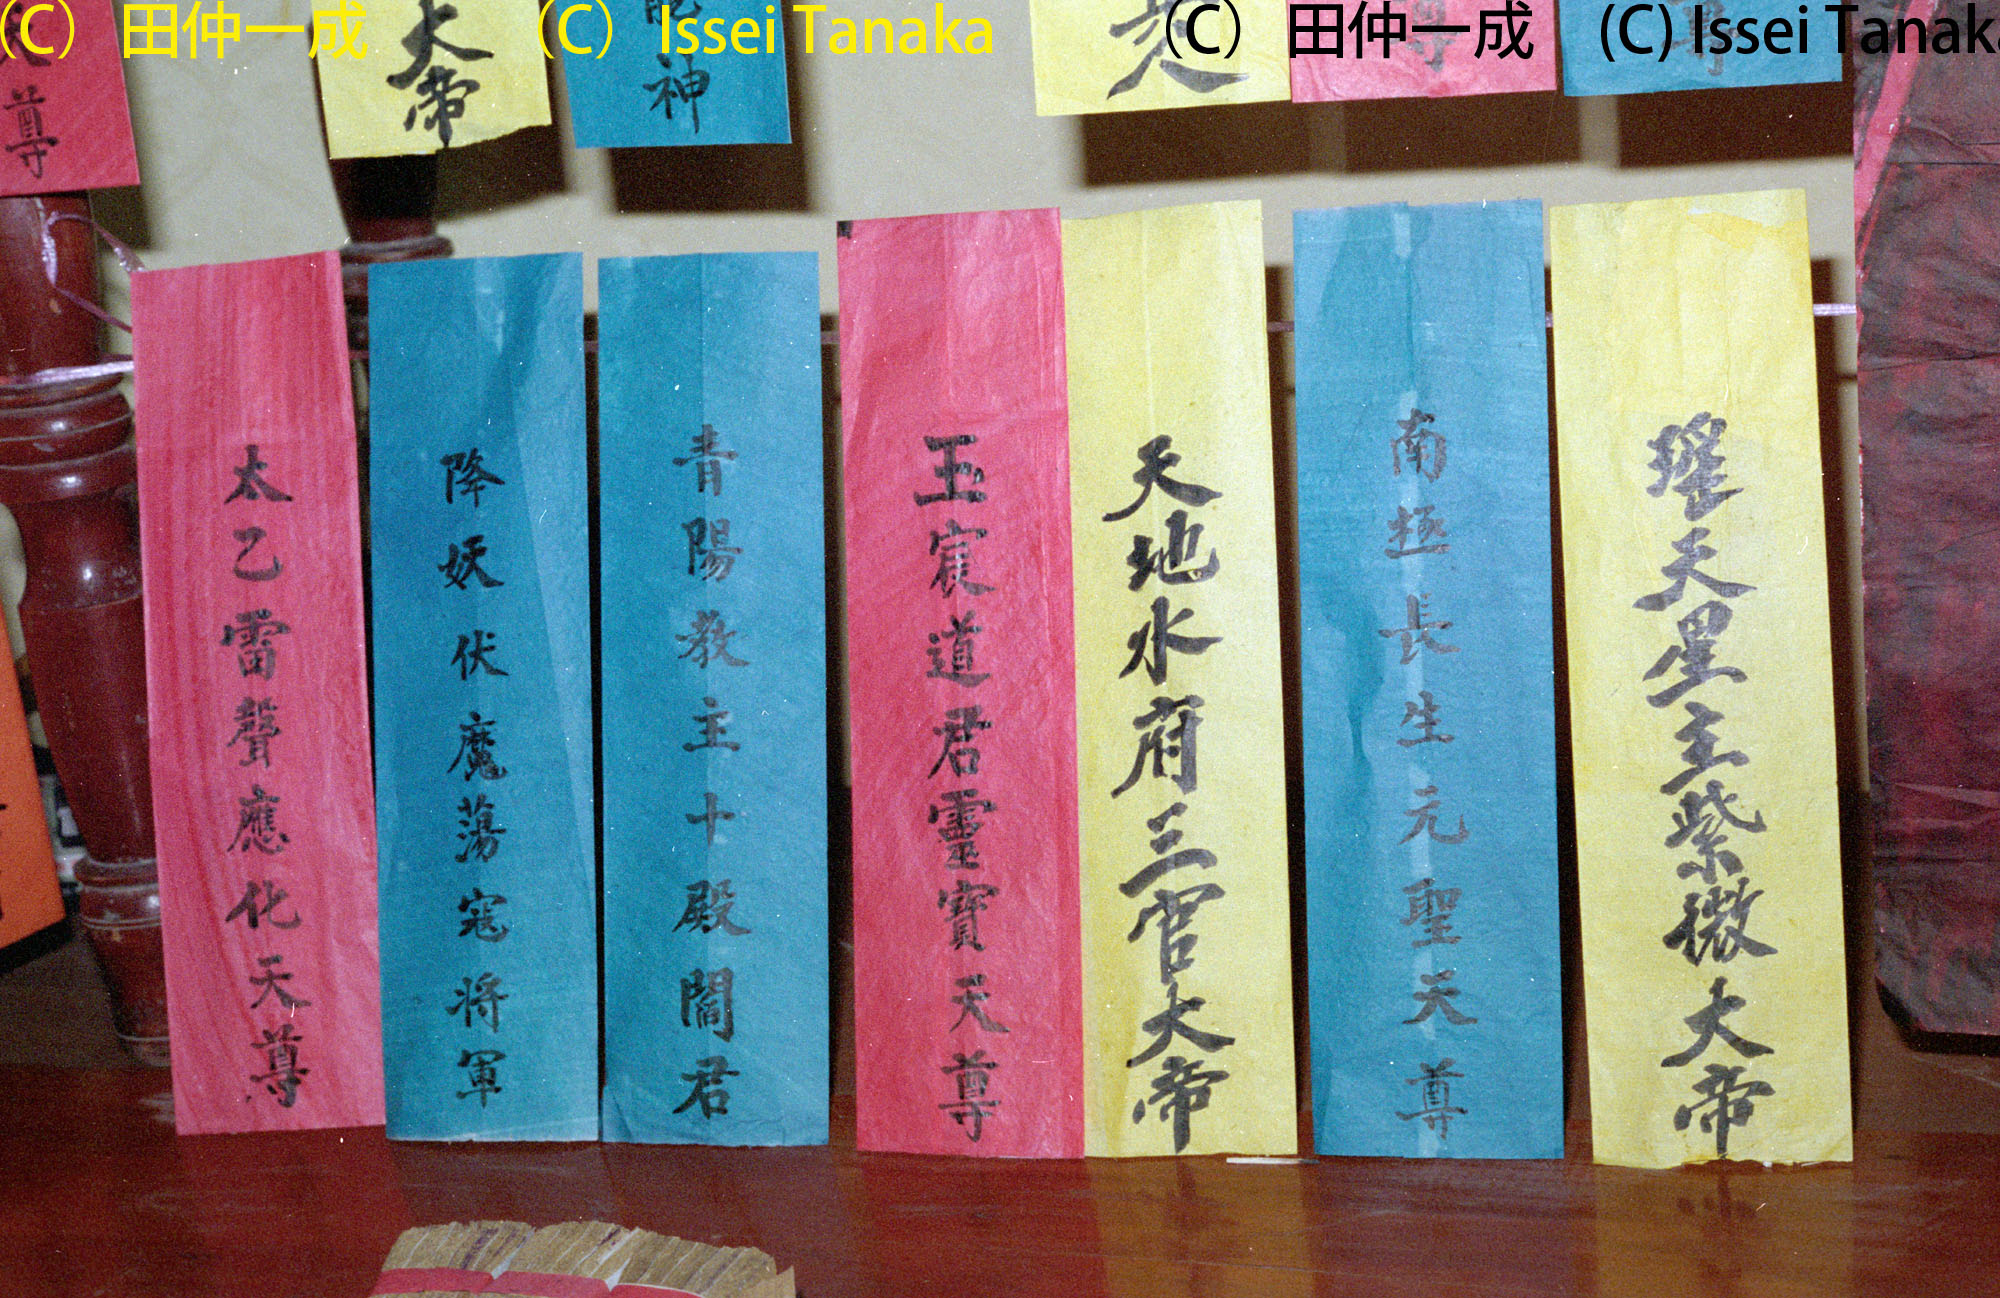 (C) 田仲一成
(C) Issei Tanaka
(C) 田仲一成
(C) Issei Tanaka
神
大帝
尊
瑤天星主紫微大帝
南極長生元聖天尊
天地水府三官大帝
玉宸道君靈寶天尊
青陽教主十殿閻君
降妖伏魔蕩寇将軍
太乙雷聲應化天尊